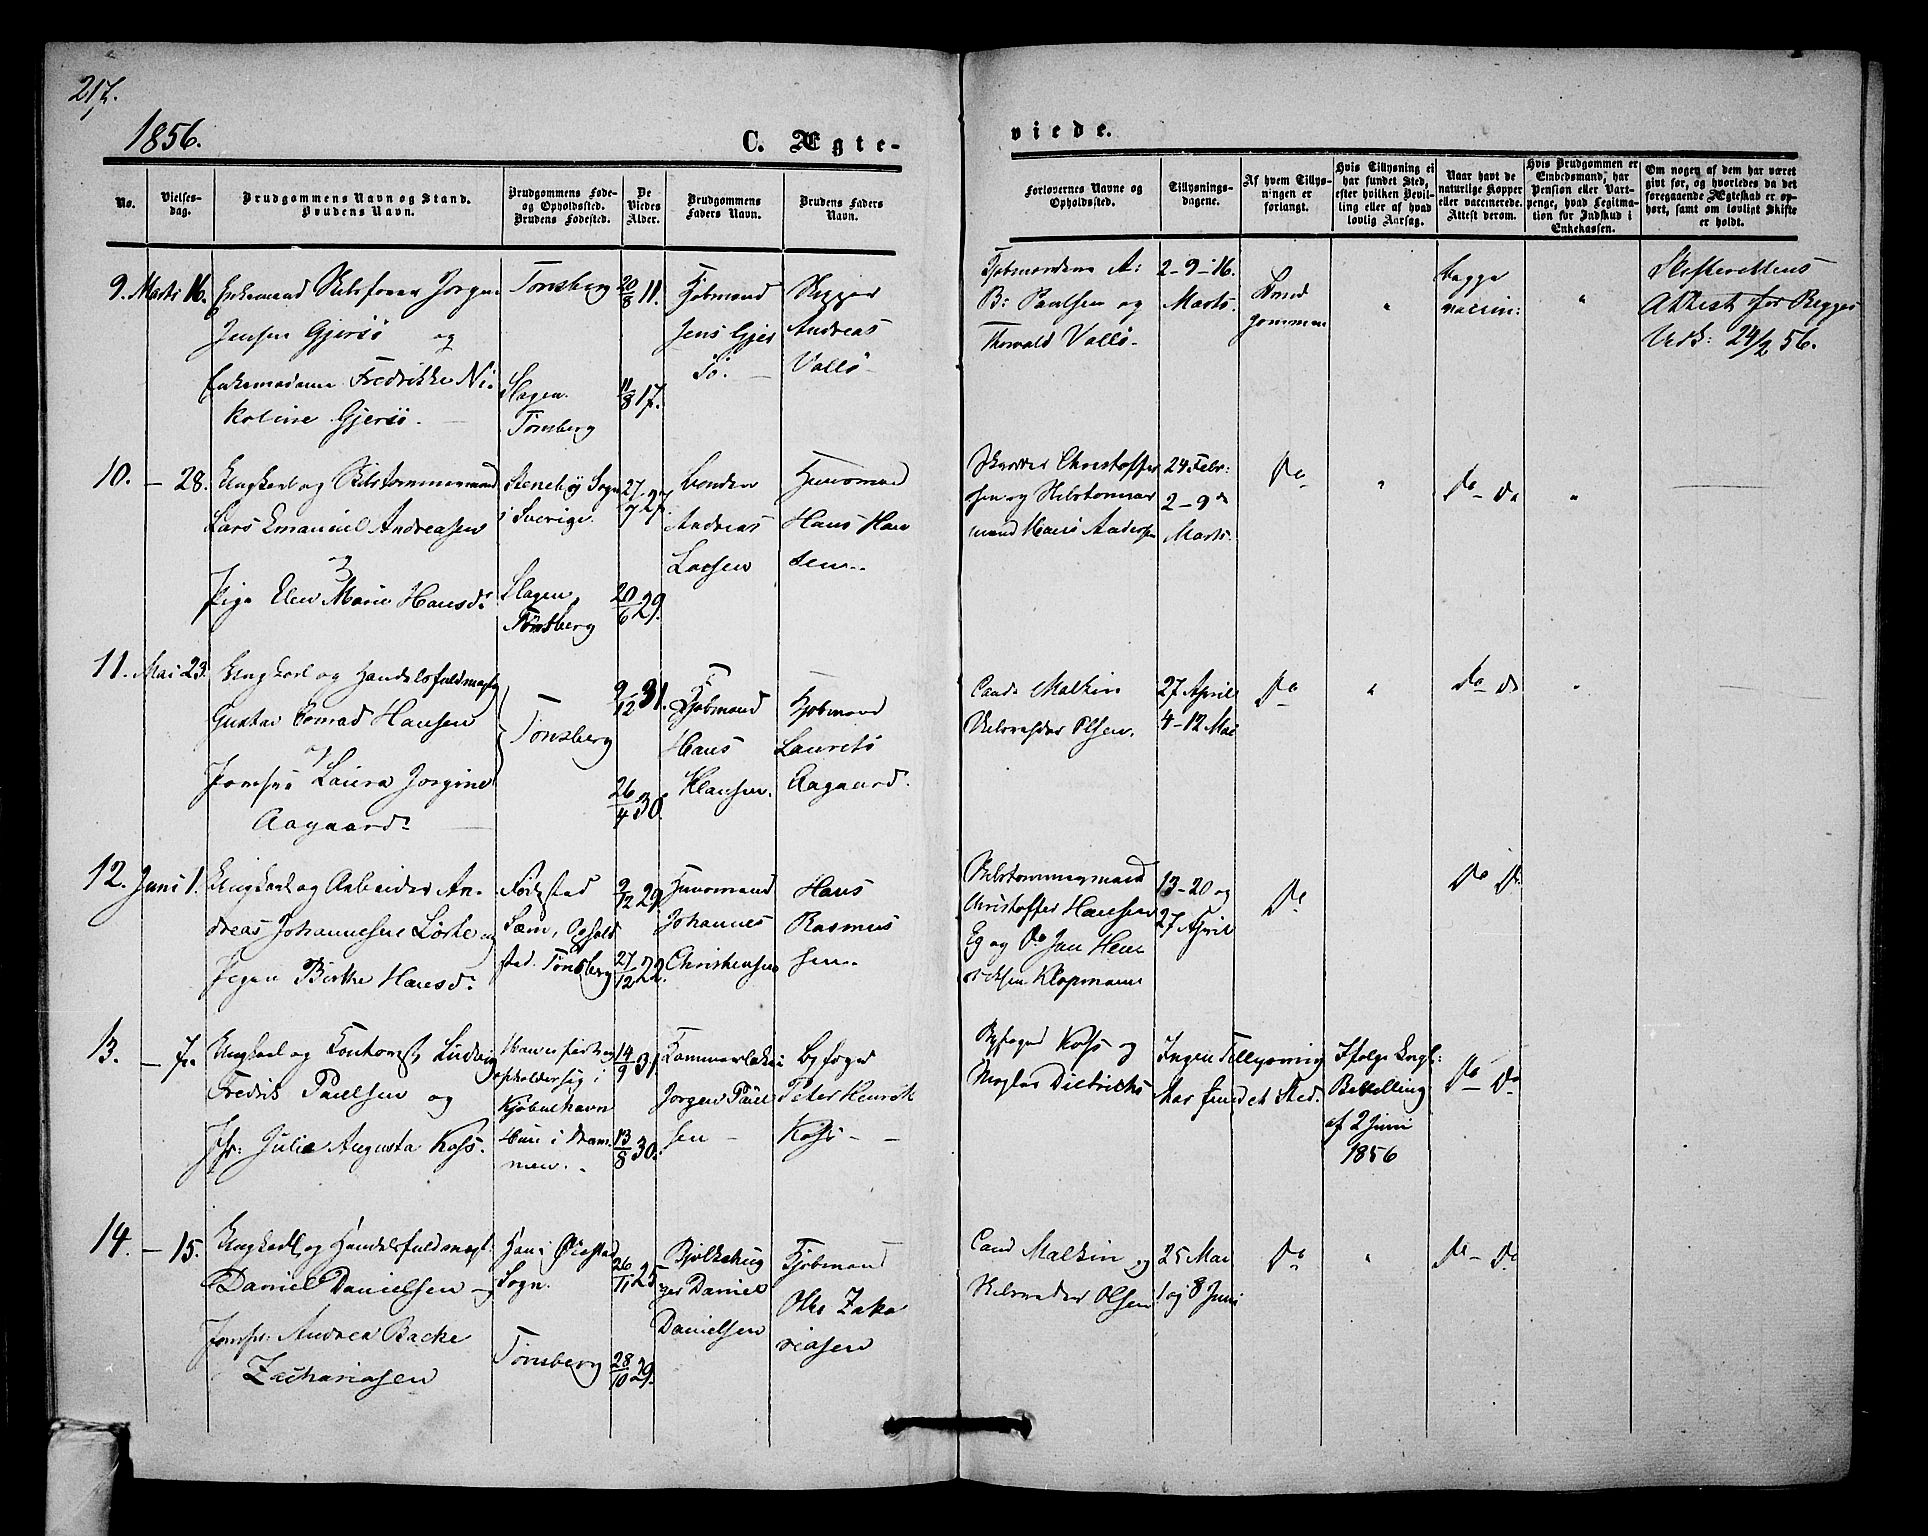 217.
1856.
C. Ægte-
viede.
No.
Vielses-
dag.
Brudgommens Navn og Stand.
Brudens Navn.
Brudgommens Føde-
og Opholdssted.
Brudens Fødested.
De
Viedes
Alder.
Brudgommens
Faders Navn.
Brudens Faders
Navn.
Forlovernes Navne og
Opholdssted.
Tillysnings-
dagene.
Af hvem Tillys-
ningen er
forlangt.
Hvis Tillysning ei
har fundet Sted,
efter hvilken Bevil-
ling eller af hvad
lovlig Aarsag.
Naar havt de
naturlige Kopper
eller vaccinerede.
Attest derom.
Hvis Brudgommen er
Embedsmand, har
Pension eller Vart-
penge, hvad Legitima-
tion for Indskud i
Enkekassen.
Om nogen af dem har været
givt før, og hvorledes da det
foregaaende Ægteskab er op-
hørt, samt om lovligt Skifte
er holdt.
9. Marts 16.
Enkemand Jørgen
Jensen Gjersø og
Enkemadame Fredrikke Ni-
koline Gjersø.
Tønsberg
Slagen
Tønsberg
20/8 11.
11/8 17.
Kjøbmand
Jens Gjer
sø.
Skipper
Andreas
Vallø
Kjøbmændene A:
B: Paulsen og
Thorvald Vallø.
2-9-16.
Marts.
Brud
gommen
"
begge
vaccin:
"
Skifterettens
Attest for Begges
Vedk: 24/2 56.
10. - 28.
Ungkarl og Skibstømmermand
Lars Emanuel Andreasen
og
Pige Elen Marie Hansd.
Stenebÿ Sogn
i Sverige.
Slagen,
Tønsberg
27/7 27.
20/6 29.
bonden
Andreas
Larsen
Huusmand
Hans Han
sen.
Christoffer
sen og Skibstømmer
mand Hans Anders
24. Febr:
2-9de
Marts.
Do
"
Do - Do
"
11. Mai 23.
Ungkarl og Handelsfuldmægtig
Gustav Conrad Hansen
og
Jomfru Laura Jørgine
Aagaard.
Tønsberg
9/12 31.
26/4 30.
Kjøbmand
Hans
Klausen.
Kjøbmand
Laurits
Aagaard.
Cand. Malkin
Olsen.
27 April
4-12 Mai
Do
"
Do Do
"
12. Juni 1.
Ungkarl og Arbeider An-
dreas Johannesen Løske og
Pigen Birthe Hansd.
Fødested
Sæm, Ophold
sted. Tønsberg
9/12 29.
27/12 22.
Huusmand
Johannes
Christensen
Hans
Rasmus
sen.
Skibstømmermand
Christoffer Hansen
Eg og Do Jan Hen
riksen Klopmann
13-20 og
27 April
Do
Do Do
13. - 7.
Ungkarl og Contorist Ludvig
Fredrik Paulsen og
Jfr: Julia Augusta Koss.
Han er født og
opholder sig i
Kjøbenhavn
Hun i Dram
men.
14/9 31.
13/8 30.
Kammerlakai
Jørgen Paul
sen -
byfoged
Peter Henrik
Koss -
Byfoged Koss og
Mægler Dietrichs
Ingen Tillysning
har fundet Sted.
Ifølge Kongl:
Bevilling
af 2 Juni
1856
Do - Do
14. - 15.
Ungkarl og Handelsfuldmægt.
Daniel Danielsen og
Jomfr: Andrea Backe
Zachariasen
Han i Øiestad
Sogn.
Tønsberg
26/11 25
28/10 29.
Bjelkehug
ger Daniel
Danielsen
Kjøbmand
Otto Zaka
riasen
Cand Malkin og
Olsen
25 Mai
1 og 8 Juni
Do
"
Do - Do